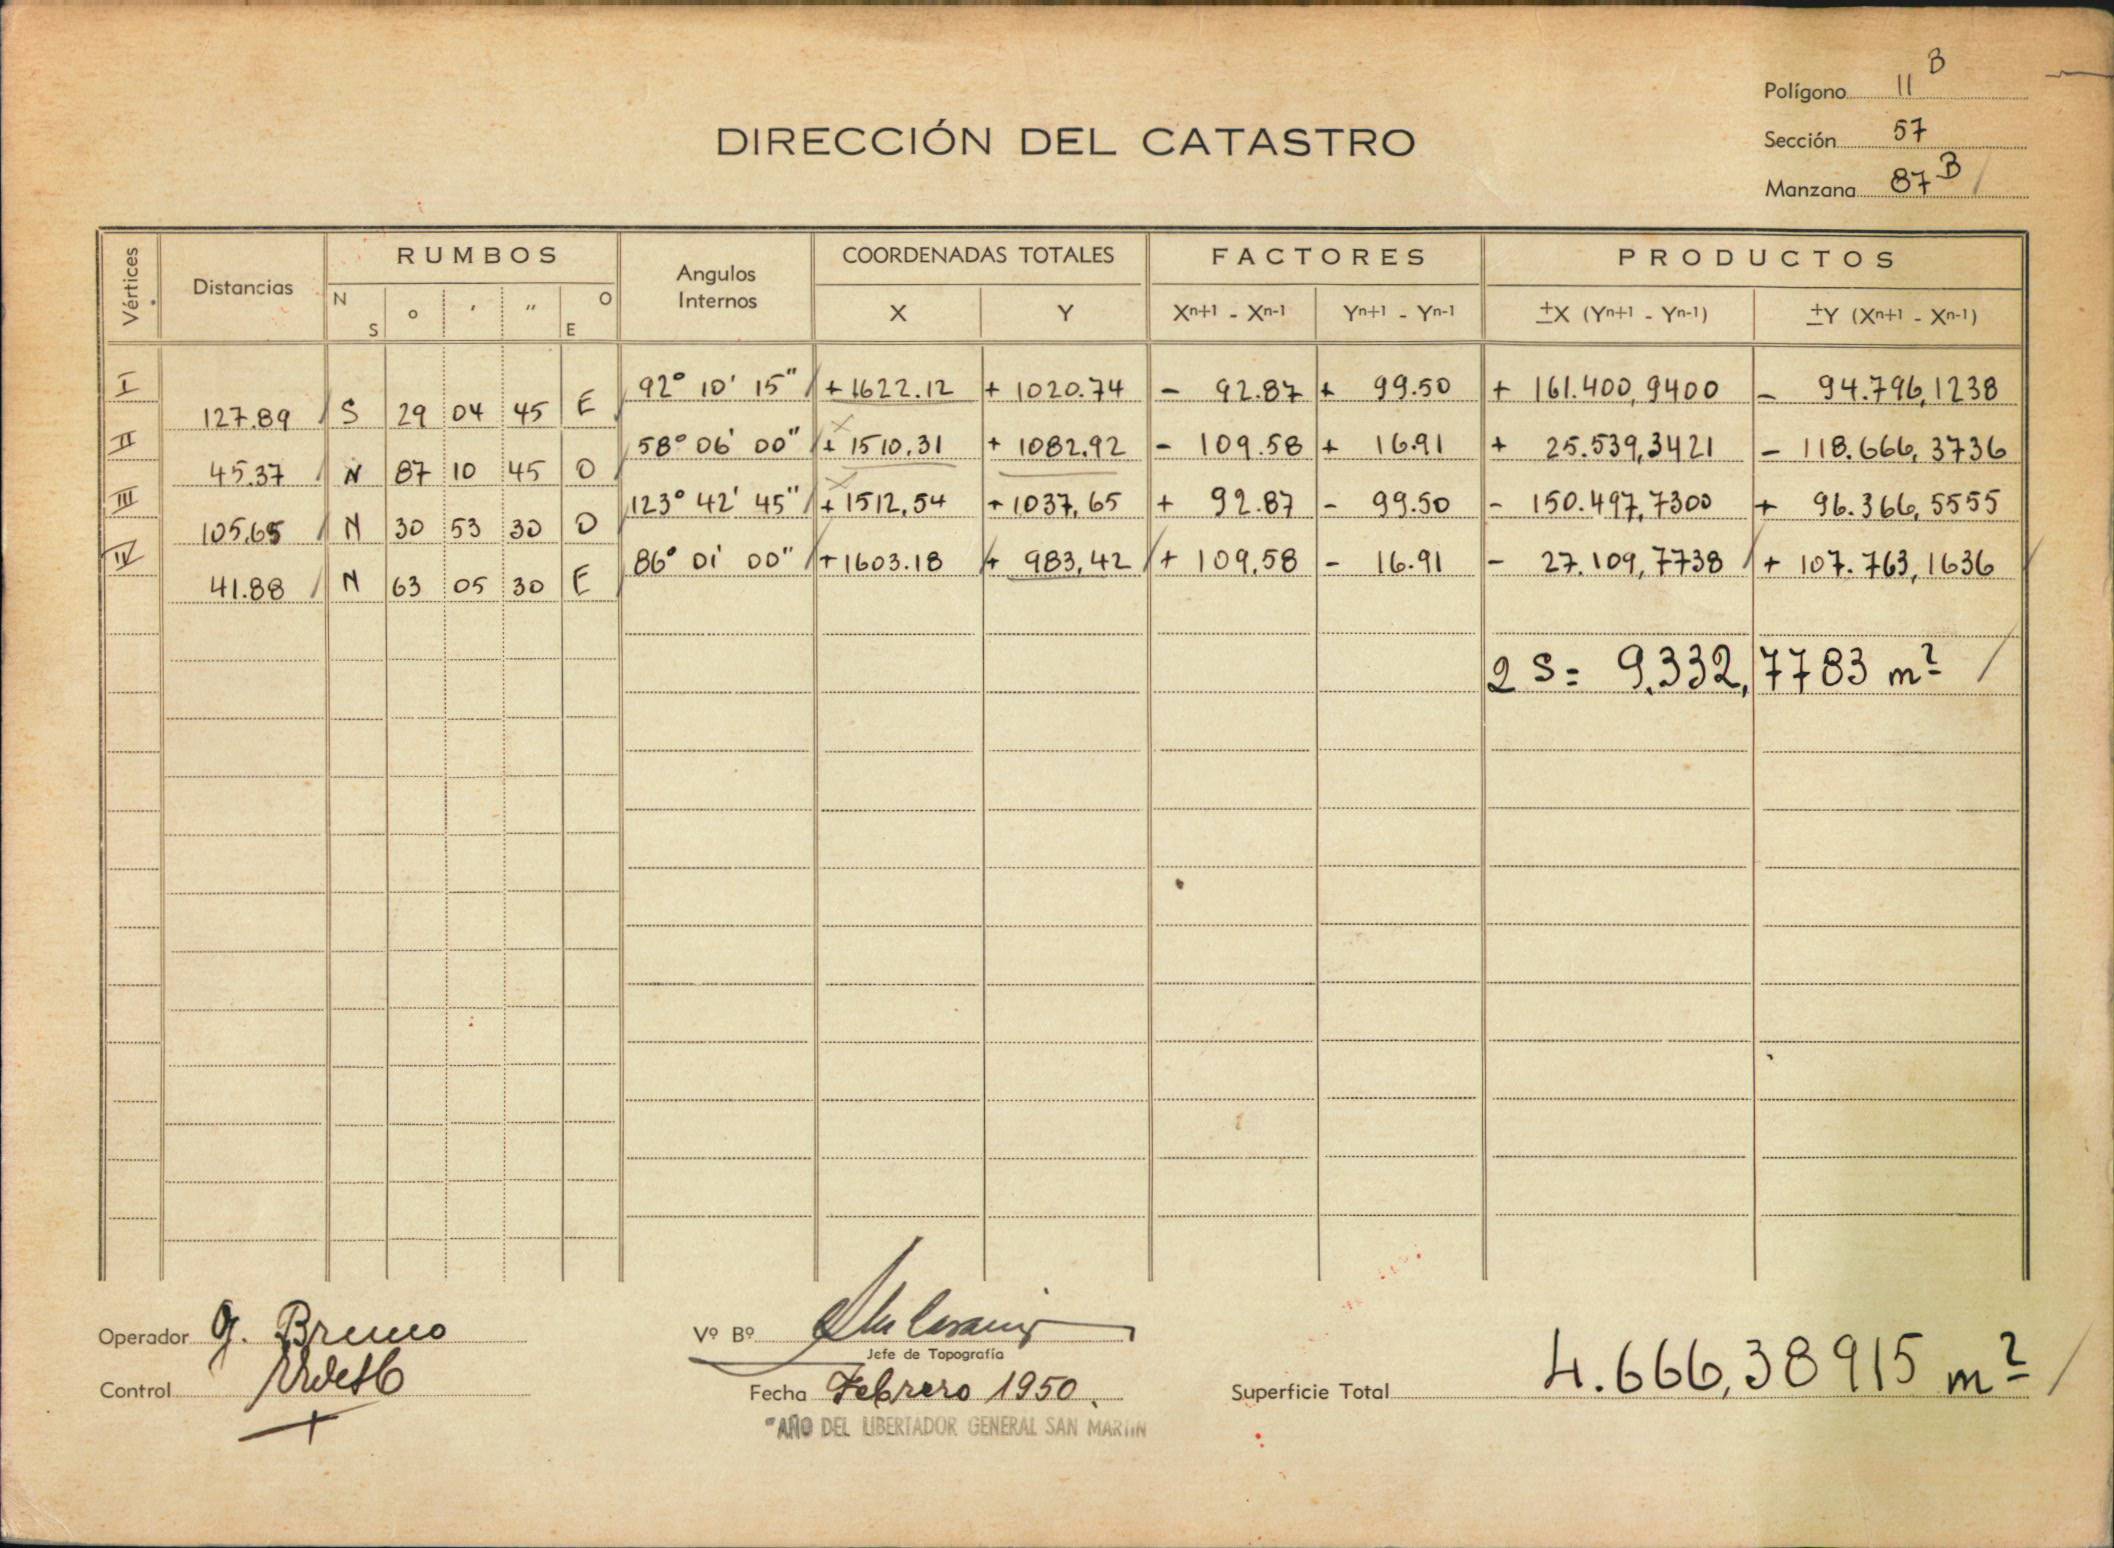 Polígono 11 B
DIRECCIÓN DEL CATASTRO
Sección 57
Manzana 87 B
Vértices Distancias RUMBOS Angulos Internos COORDENADAS TOTALES FACTORES PRODUCTOS
N S ° ' " O E X Y Xn+1 - Xn-1 Yn+1 - Yn-1 ±X (Yn+1 - Yn-1) ±Y (Xn+1 - Xn-1)
I 92° 10' 15" + 1622.12 + 1020.74 - 92.87 + 99.50 + 161.400,9400 - 94.796,1238
127.89 S 29 04 45 E
II 58° 06' 00" + 1510.31 + 1082.92 - 109.58 + 16.91 + 25.539,3421 - 118.666,3736
45.37 N 87 10 45 O
III 123° 42' 45" + 1512,54 + 1037,65 + 92.87 - 99.50 - 150.497,7300 + 96.366,5555
105.65 N 30 53 30 O
IV 86° 01' 00" + 1603.18 + 983,42 + 109,58 - 16.91 - 27.109,7738 + 107.763,1636
41.88 N 63 05 30 E
2 S = 9.332,7783 m²
Operador G. Bruno
Control
Vº Bº
Jefe de Topografía
Fecha Febrero 1950.
"AÑO DEL LIBERTADOR GENERAL SAN MARTIN
Superficie Total 4.666,38915 m²